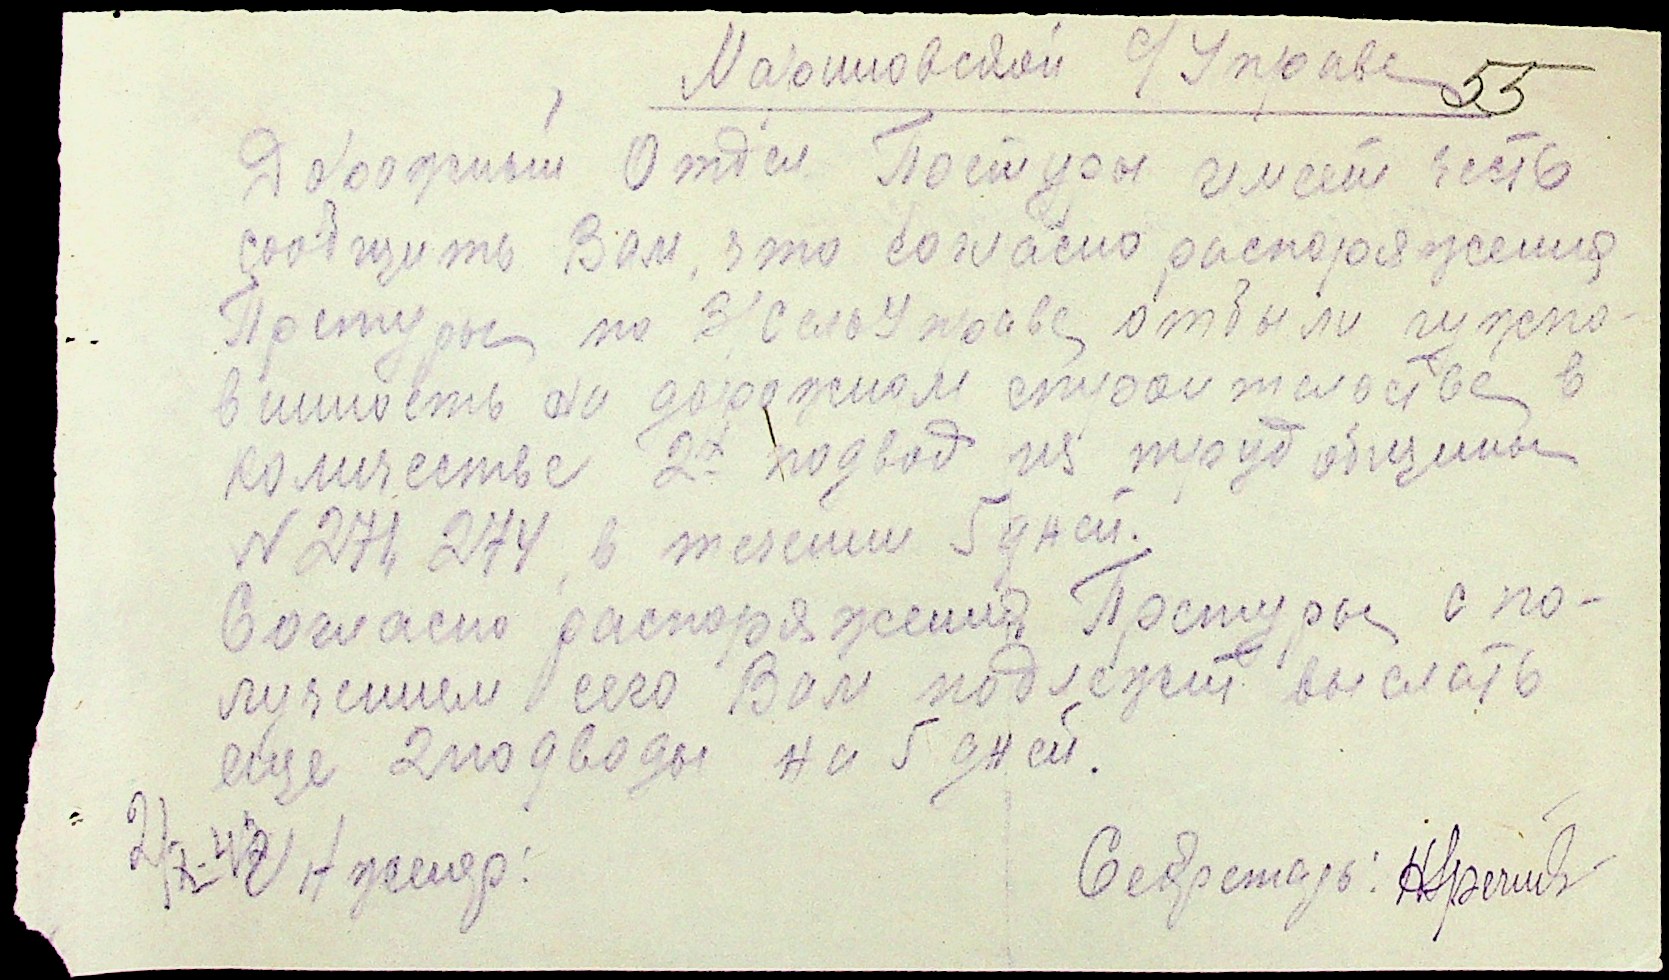 Мариновской с/Управе 55
Дорожный Отдел Претуры имеет честь
сообщить Вам, что согласно распоряжения
Претуры по В/СельУправе отбыли гужпо-
винность на дорожном строительстве в
количестве 2х подвод из труд общины
N 271, 274, в течении 5 дней.
Согласно распоряжения Претуры с по-
лучением сего Вам подлежит выслать
еще 2 подводы на 5 дней.
Инженер:
Секретарь: